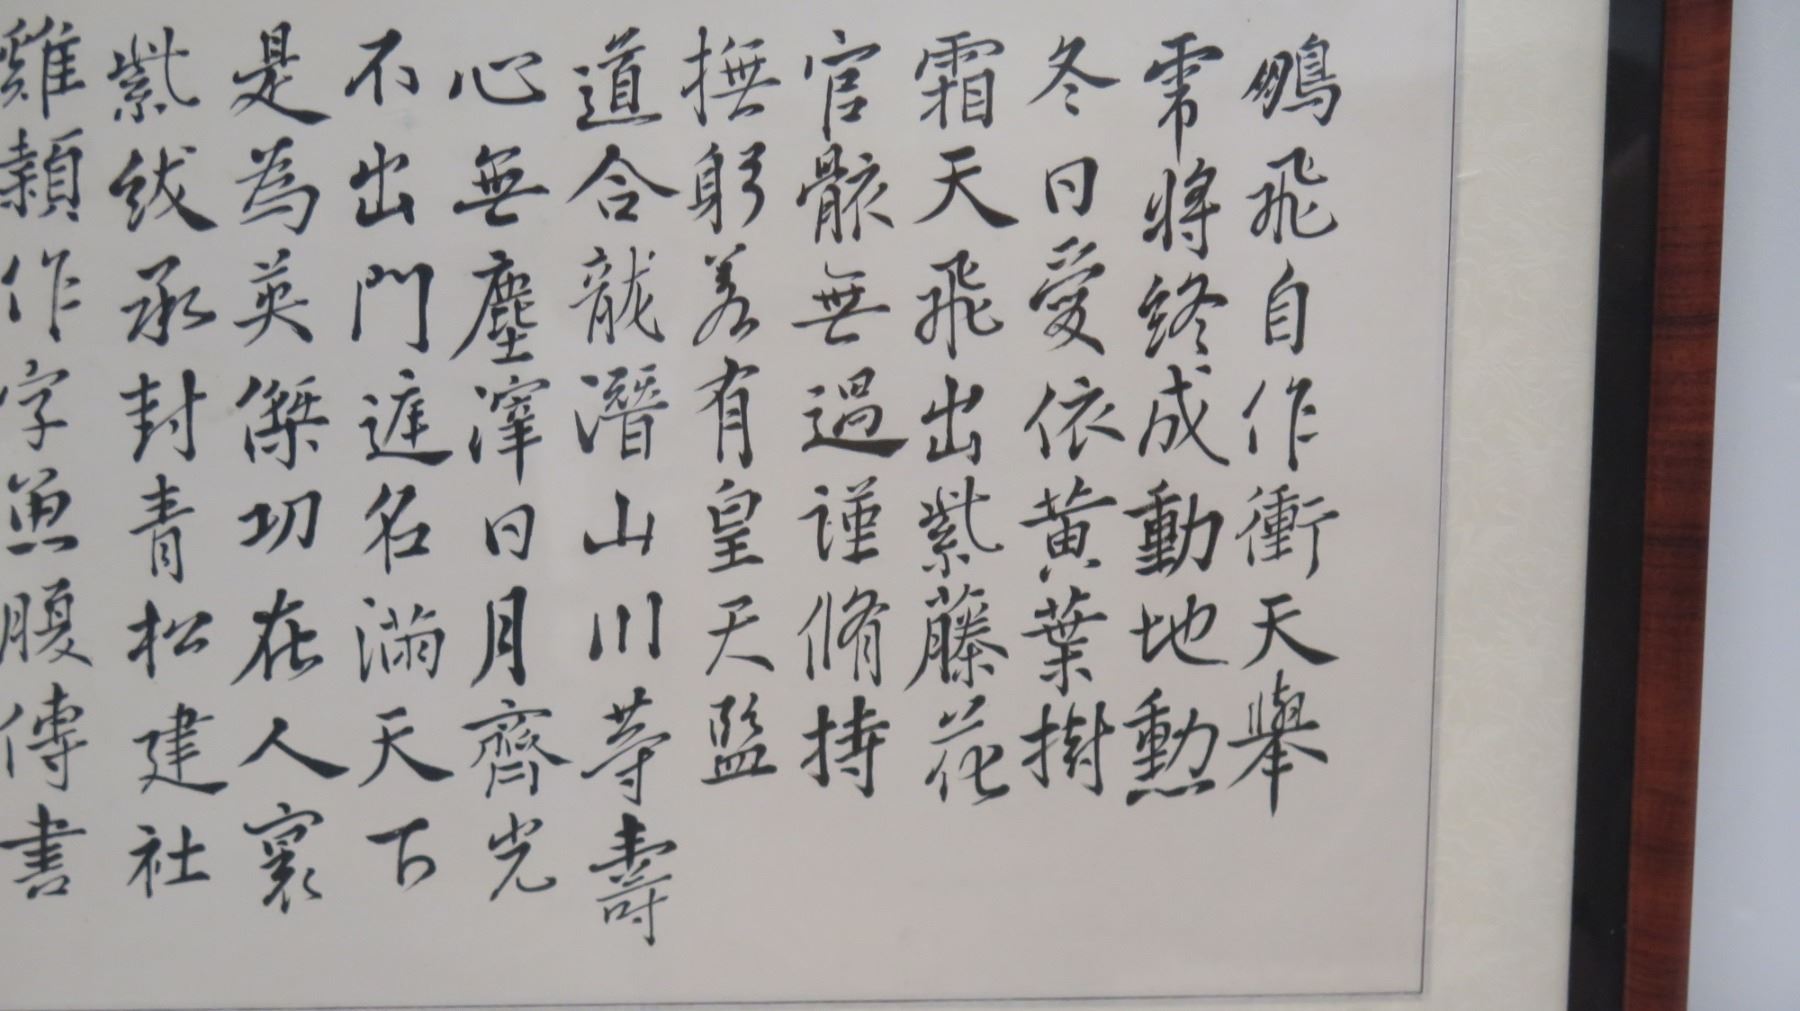 鵰飛自作衝天舉
雷將終成動地勲
冬日愛依黃葉樹
霜天飛出紫藤花
官骸無過謹脩持
撫躬若有皇天監
道合龍潛山川等壽
心無塵滓日月齊光
不出門遮名滿天下
是為英傑切在人寰
紫紱承封青松建社
雞穎作字魚腹傳書